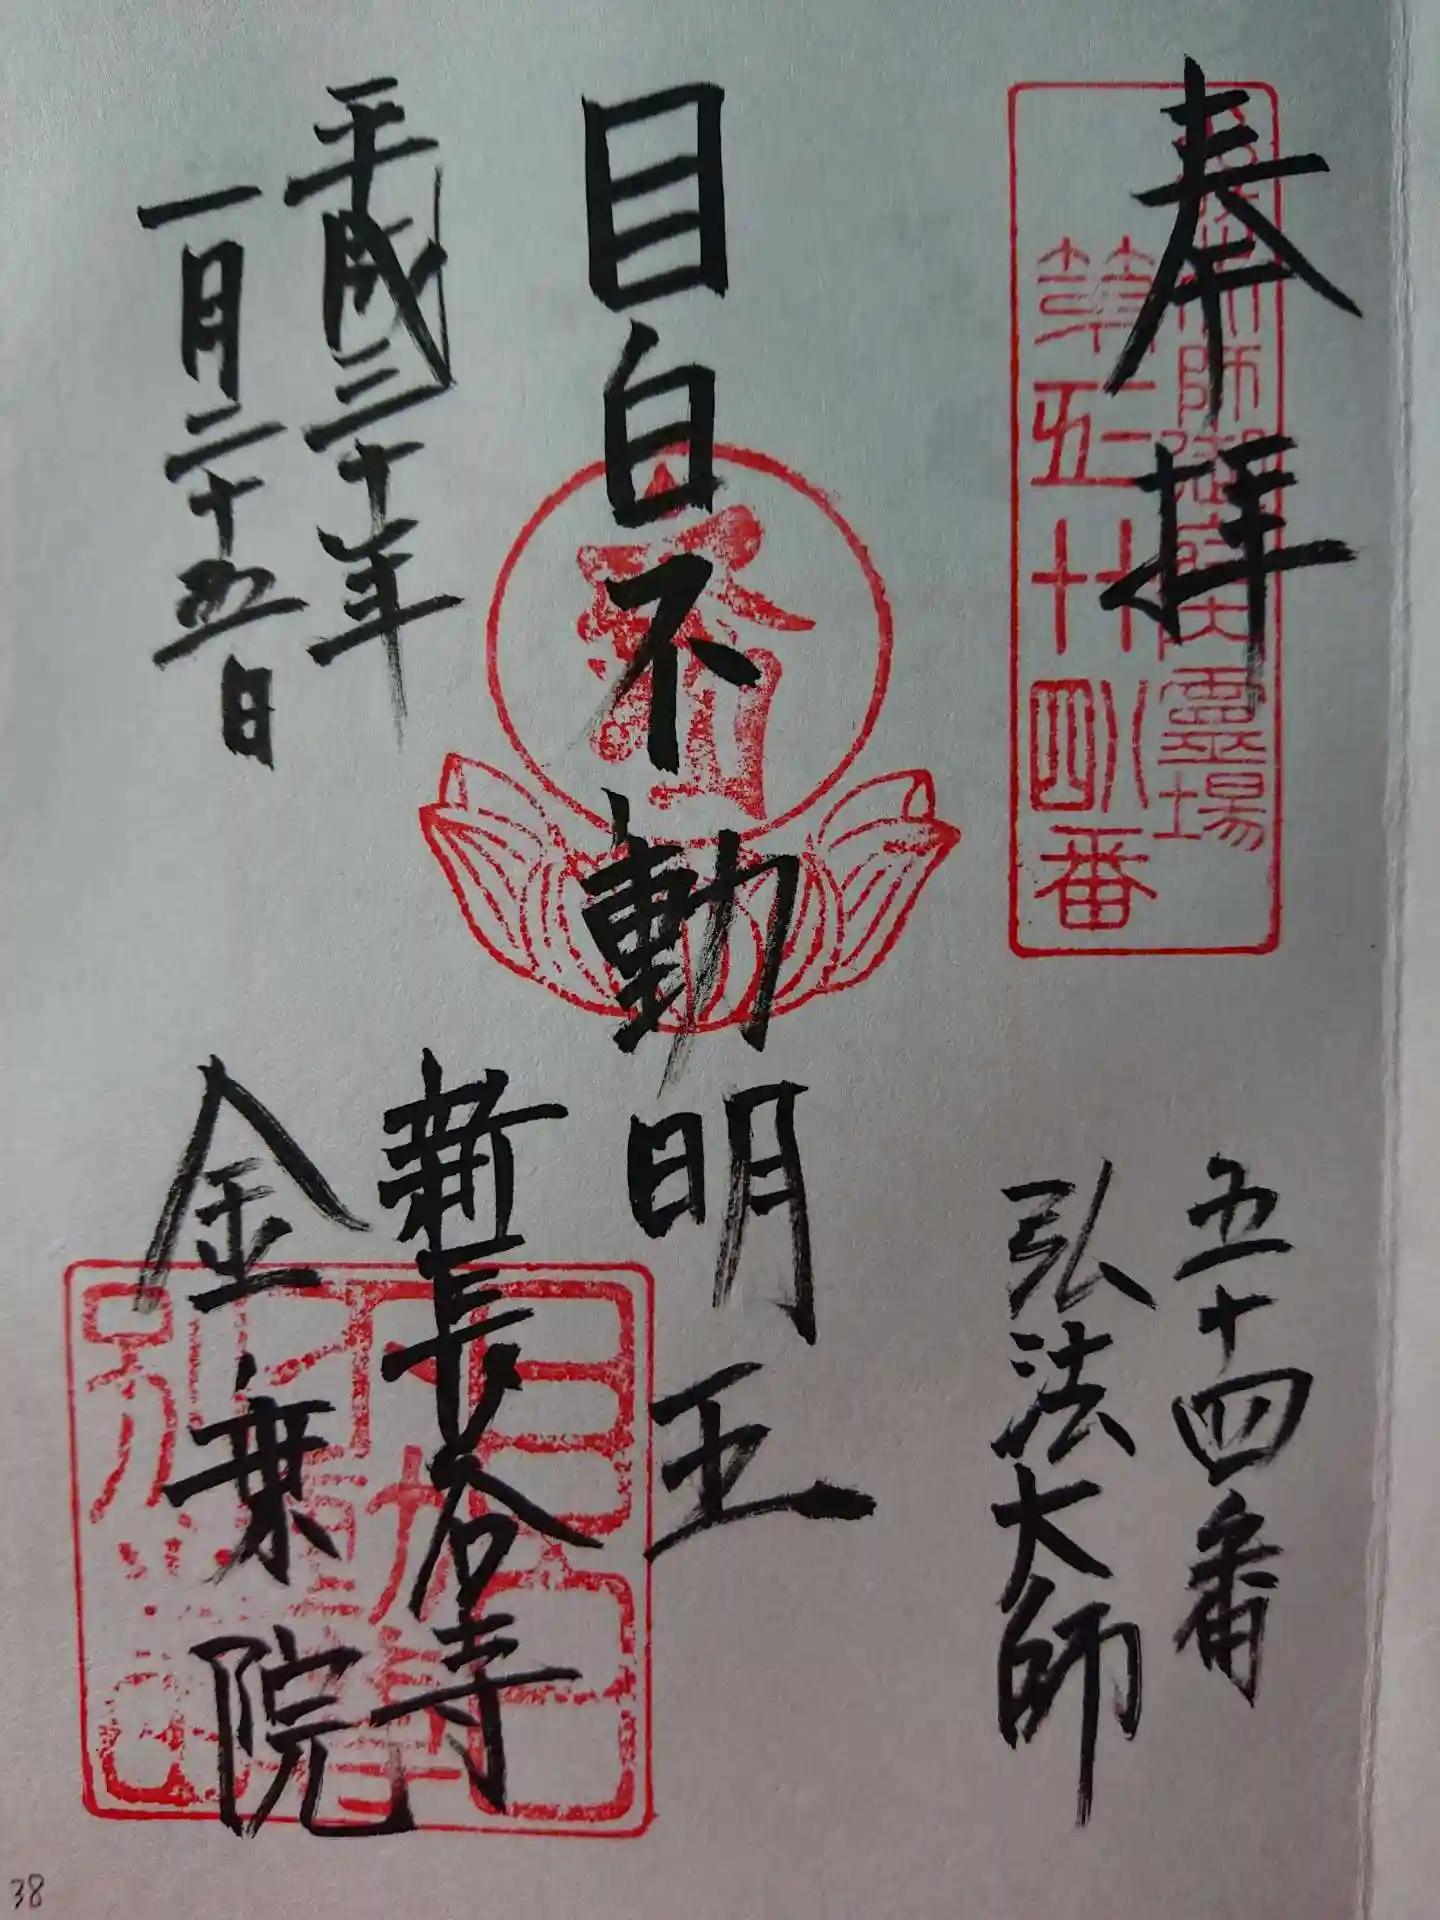 奉拝
師御府内霊場
第五十四番
五十四番
弘法大師
目白不動明王
平成三十年
一月二十五日
新長谷寺
金乗院
38